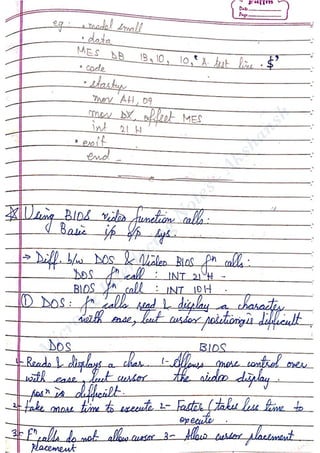 eg: .model small
.data
MES DB 13,10, 10, 'A test line . $'
.code
.startup
mov AH, 09
mov DX, offset MES
int 21 H
.exit
end
Using BIOS video function calls:
Basic i/p o/p sys.
→ Diff. b/w DOS & Video BIOS fⁿ calls:
DOS fⁿ call : INT 21H -
BIOS fⁿ call : INT 10H .
① DOS: fⁿ calls read & display a character
with ease, but cursor positioning is difficult
DOS BIOS
1- Reads & displays a char. 1- Allows more control over
with ease, but cursor the video display.
posⁿ is difficult.
2- take more time to execute 2- Faster (takes less time to
execute.
3- Fⁿ calls do not allow cursor 3- Allow cursor placement
placement